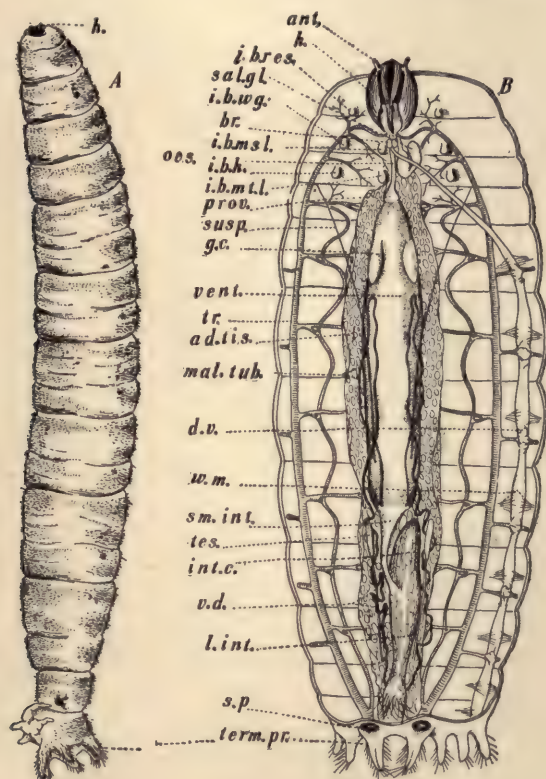 h.
A
ant,
h.
i.b.res.
sal.gl.
i.b.wg.
br.
i.b.ms l.
oes.
i.b.h.
i.b.mt.l.
prov.
susp.
g.c.
vent.
tr.
ad.tis.
mal.tub.
d.v.
w.m.
sm.int.
tes.
int.c.
v.d.
l.int.
s.p
term.pr.
B